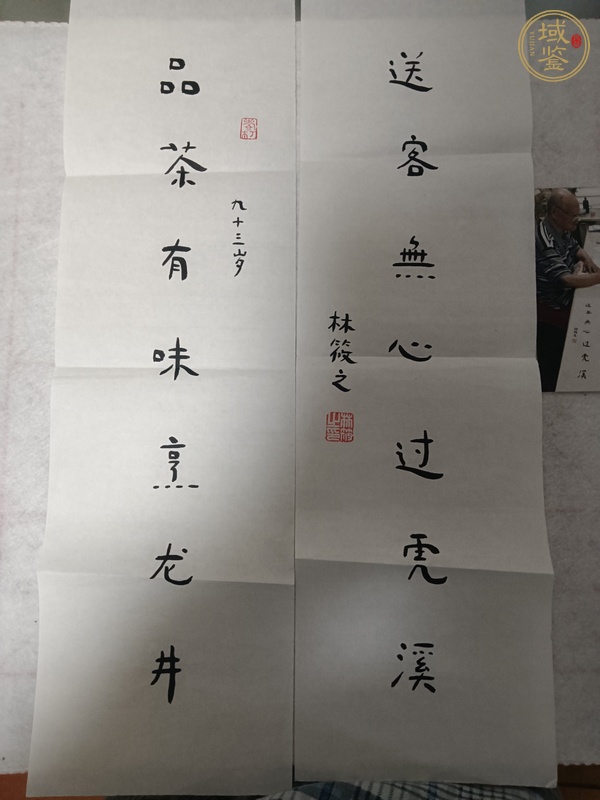 送客無心过虎溪
林筱之
林筱之印
品茶有味烹龙井
九十三岁
域鉴
YUJIAN